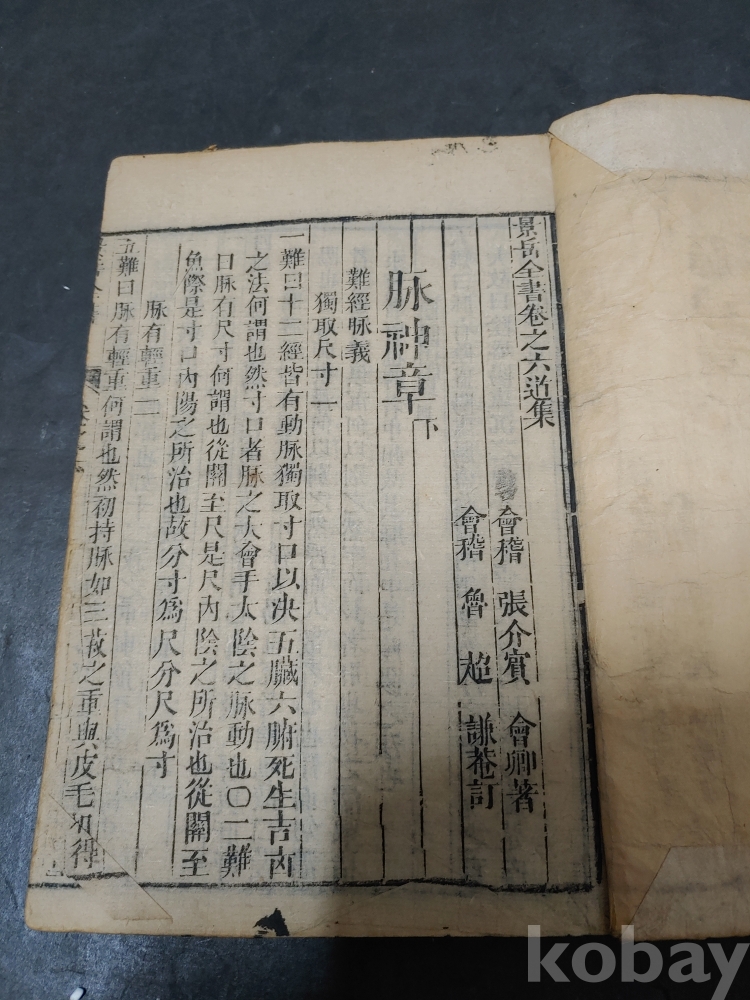 景岳全書卷之六道集
會稽 張介賔 會卿著
會稽 魯超 謙菴訂
脉神章下
難經脉義
獨取尺寸一
一難曰十二經皆有動脉獨取寸口以决五臟六腑死生吉凶
之法何謂也然寸口者脉之大會手太陰之脉動也〇二難
曰脉有尺寸何謂也從關至尺是尺內陰之所治也從關至
魚際是寸口內陽之所治也故分寸爲尺分尺爲寸
脉有輕重二
五難曰脉有輕重何謂也然初持脉如三菽之重與皮毛相得
kobay